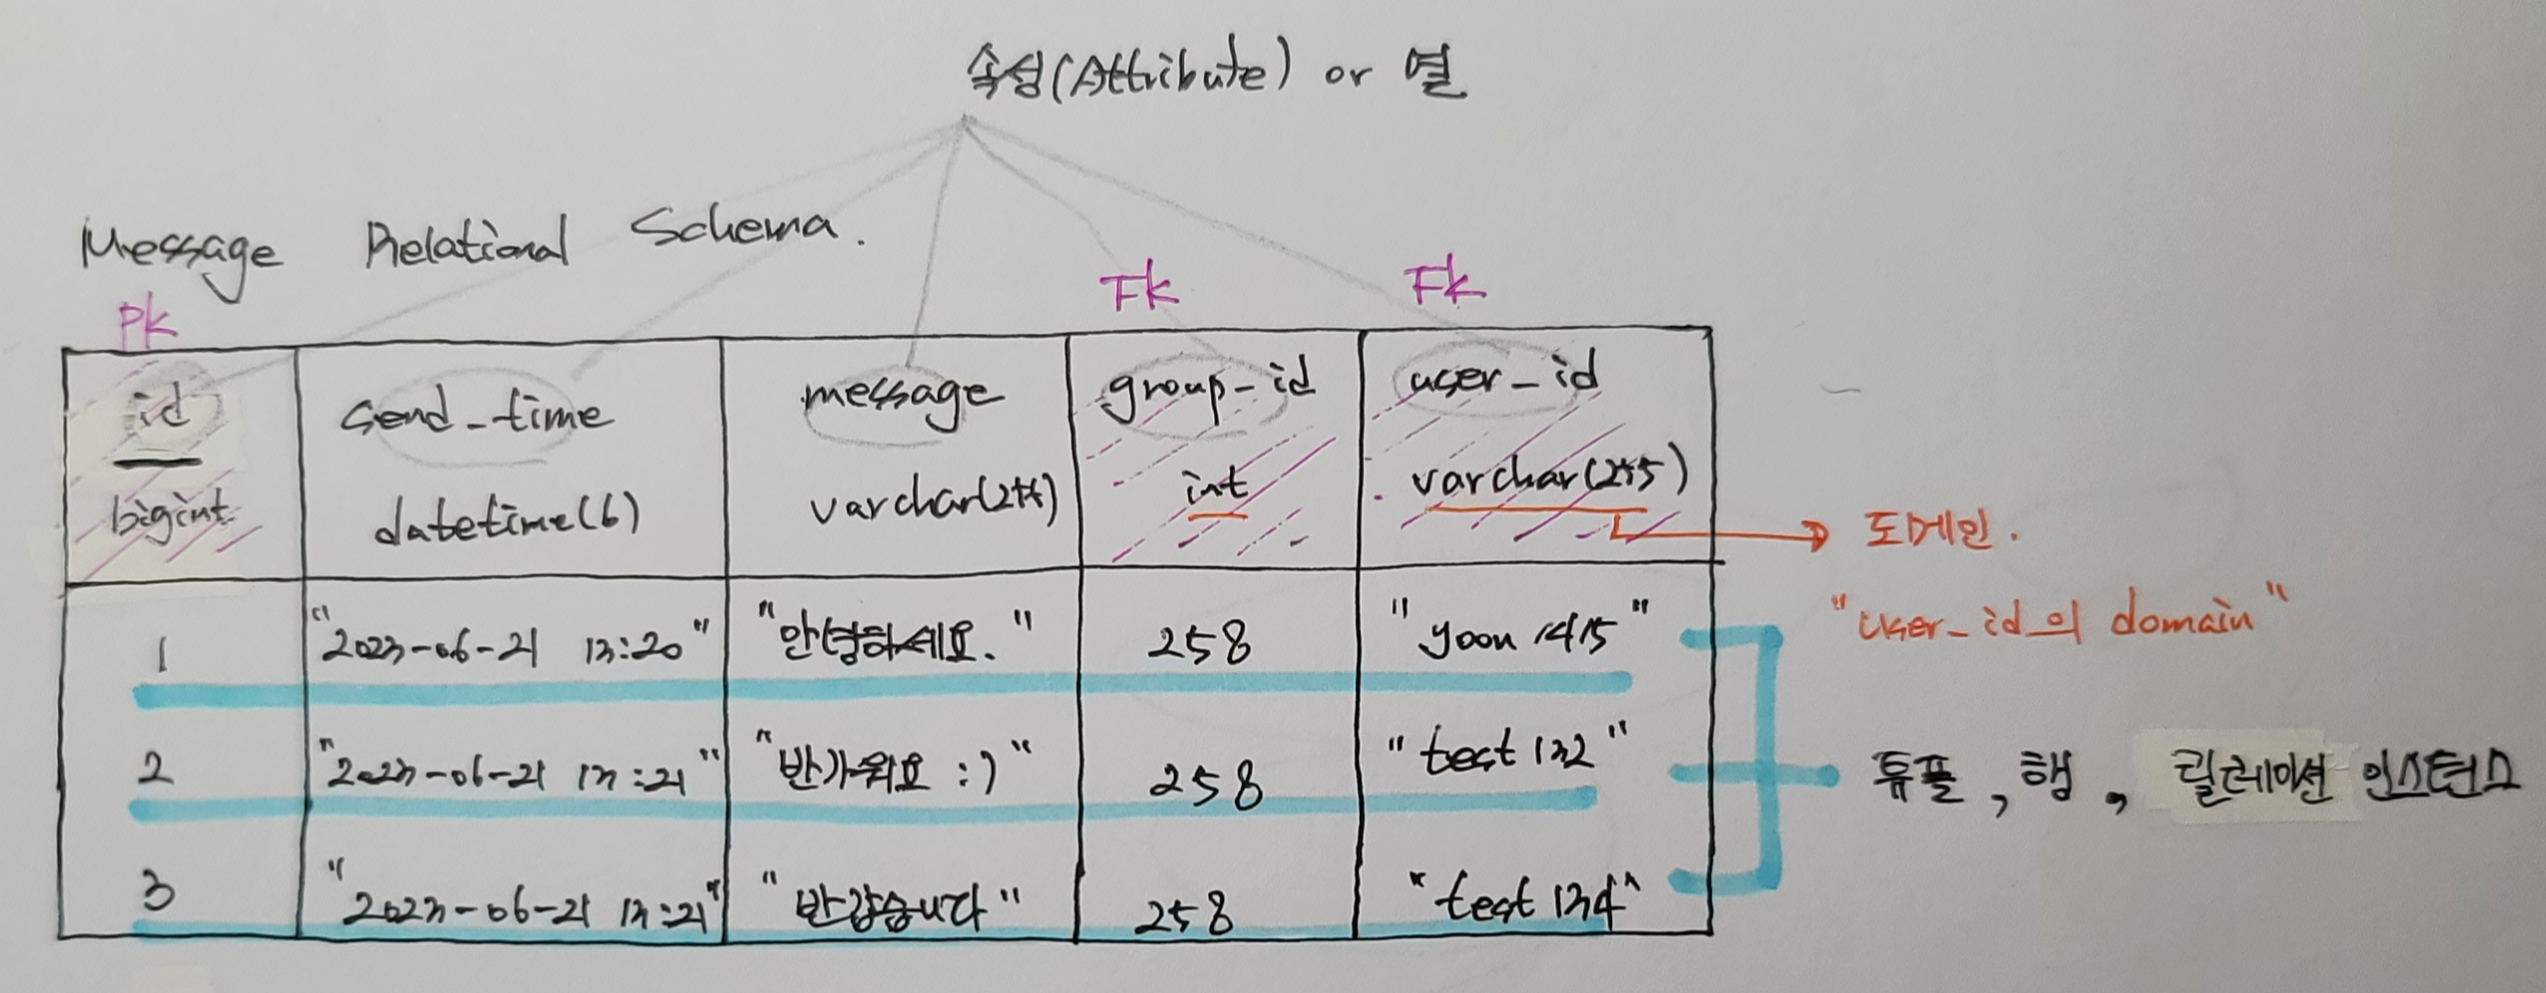 속성(Attribute) or 열
Message Relational Schema.
PK FK FK
id send_time message group_id user_id
bigint datetime(6) varchar(255) int varchar(255)
도메인.
"user_id의 domain"
1 "2023-06-21 13:20" "안녕하세요." 258 "yoon1415"
2 "2023-06-21 13:21" "반가워요 :)" 258 "test132"
3 "2023-06-21 13:21" "반갑습니다" 258 "test134"
튜플, 행, 릴레이션 인스턴스